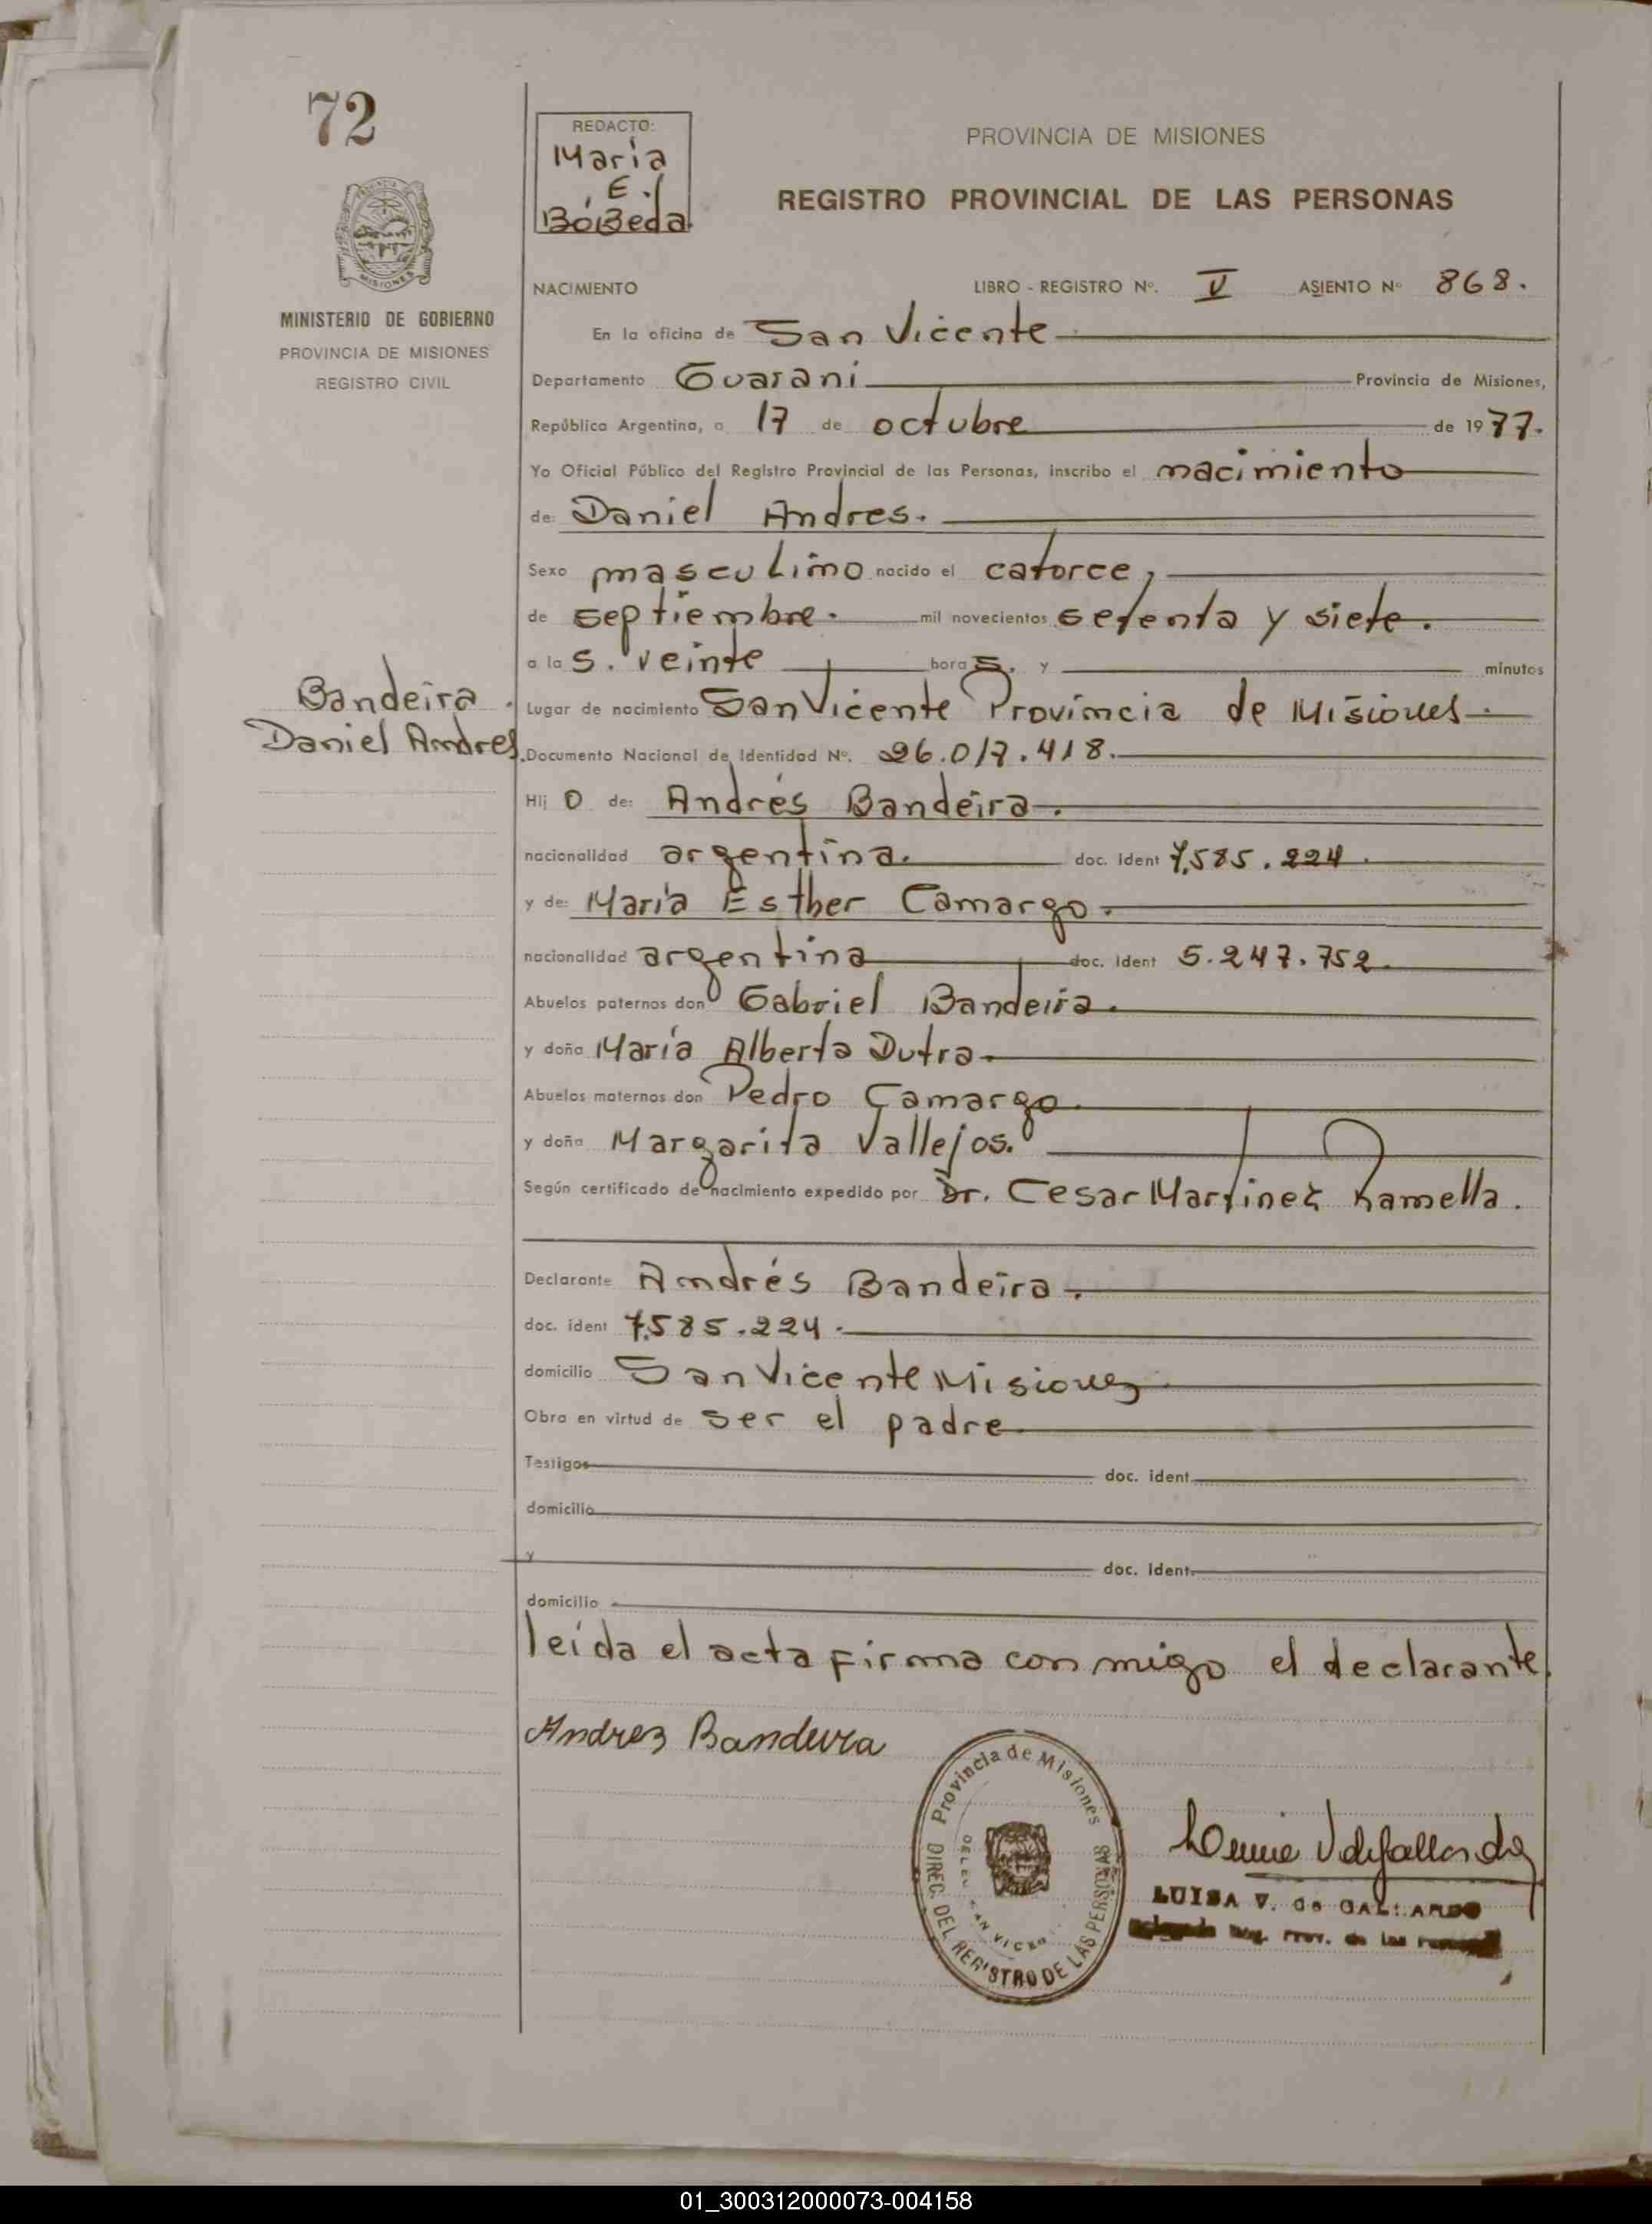 72
REDACTO:
Maria
E.
BóBeda
PROVINCIA DE MISIONES
REGISTRO PROVINCIAL DE LAS PERSONAS
MINISTERIO DE GOBIERNO
PROVINCIA DE MISIONES
REGISTRO CIVIL
NACIMIENTO LIBRO - REGISTRO Nº. V ASIENTO Nº 868.
En la oficina de San Vicente
Departamento Guarani Provincia de Misiones,
República Argentina, a 17 de octubre de 1977.
Yo Oficial Público del Registro Provincial de las Personas, inscribo el nacimiento
de: Daniel Andres.
Sexo masculino nacido el catorce,
de septiembre. mil novecientos setenta y siete.
a las. veinte horas. y minutos
Bandeira
Daniel Andres.
Lugar de nacimiento San Vicente Provincia de Misiones
Documento Nacional de Identidad Nº. 26.017.418.
Hijo de: Andrés Bandeira.
nacionalidad argentina. doc. ident 7.585.224.
y de: María Esther Camargo.
nacionalidad argentina doc. ident 5.247.752.
Abuelos paternos don Gabriel Bandeira.
y doña María Alberta Dutra.
Abuelos maternos don Pedro Camargo.
y doña Margarita Vallejos.
Según certificado de nacimiento expedido por Dr. Cesar Martinez Ramella.
Declarante Andrés Bandeira.
doc. ident 7.585.224.
domicilio San Vicente Misiones
Obra en virtud de ser el padre
Testigos doc. ident.
domicilio
y doc. ident.
domicilio
leída el acta firma con migo el declarante.
Andrez Bandeira
Provincia de Misiones
DIREC. DEL REGISTRO DE LAS PERSONAS
LUISA V. de GALLARDO
Reg. Prov. de las
01_300312000073-004158